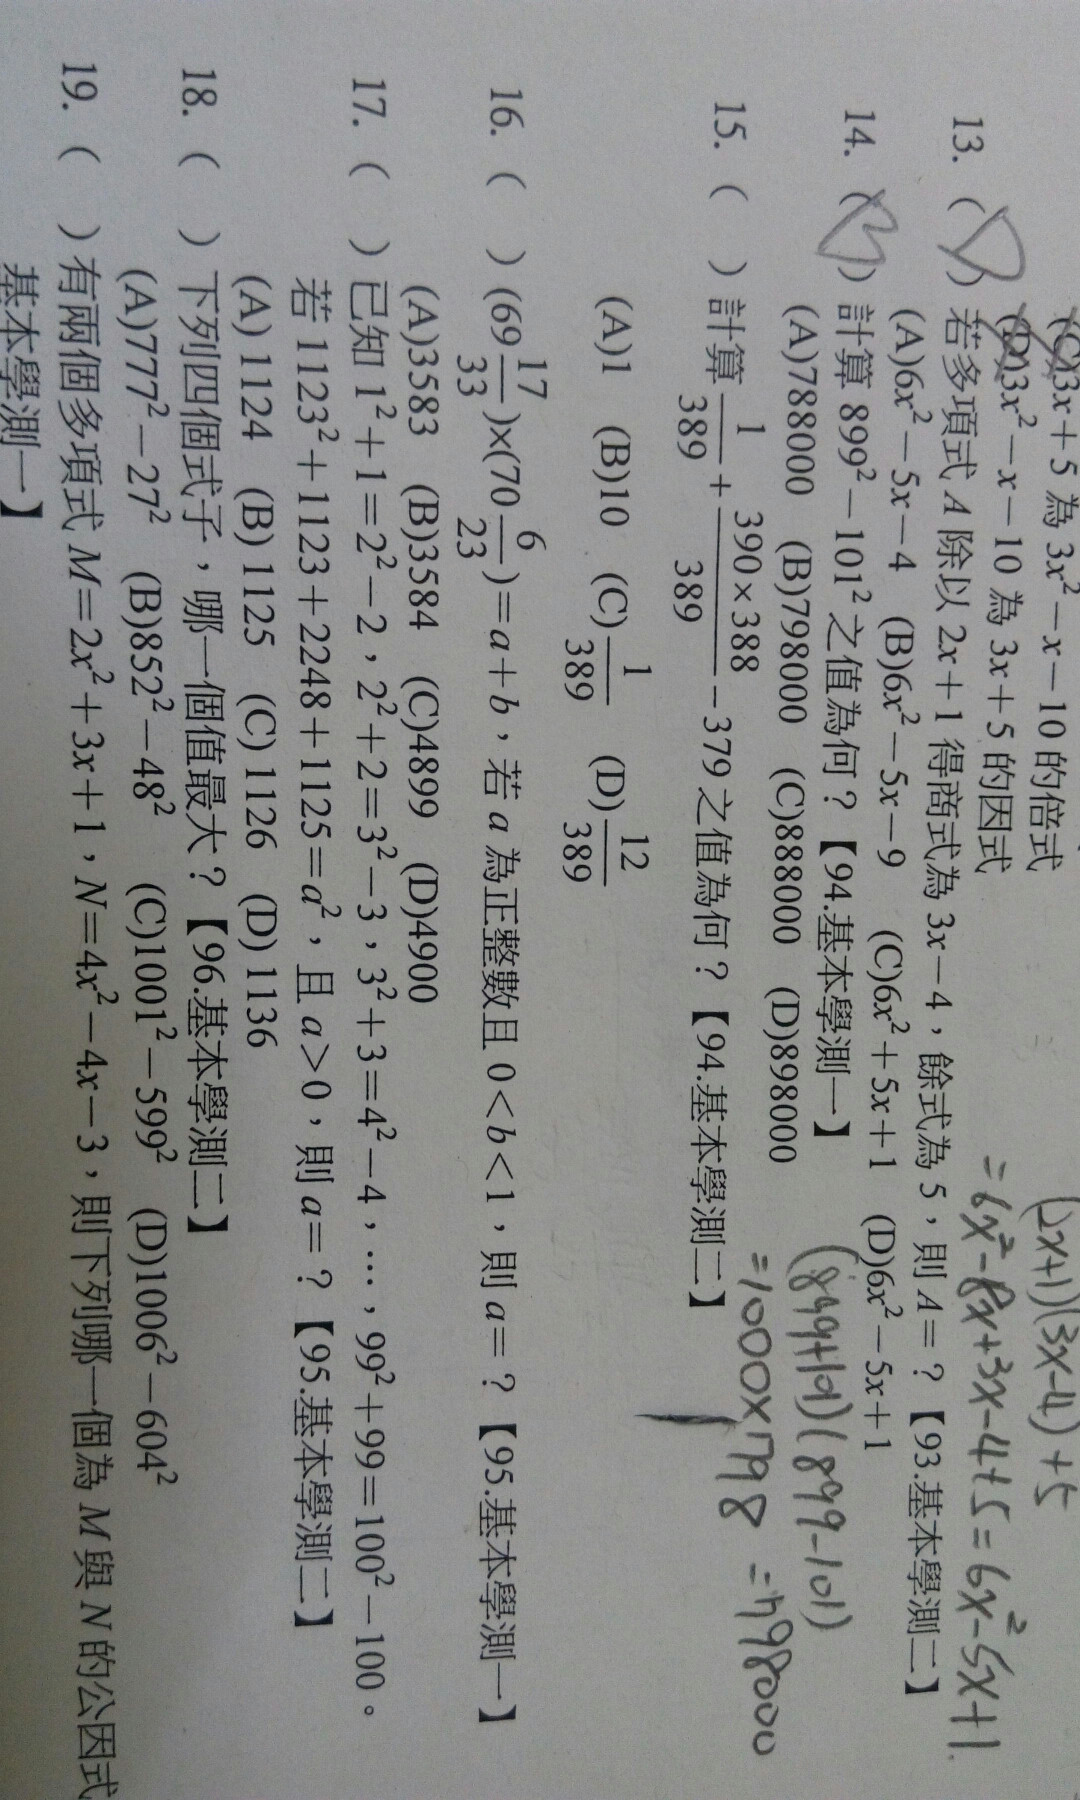 (C)3x+5 為 3x²−x−10 的倍式
(D)3x²−x−10 為 3x+5 的因式
(2x+1)(3x-4)+5
=6x²-8x+3x-4+5=6x²-5x+1
13. ( D ) 若多項式 A 除以 2x+1 得商式為 3x−4，餘式為 5，則 A=？【93.基本學測二】
(A)6x²−5x−4 (B)6x²−5x−9 (C)6x²+5x+1 (D)6x²−5x+1
14. ( B ) 計算 899²−101² 之值為何？【94.基本學測一】
(899+101)(899-101)
(A)788000 (B)798000 (C)888000 (D)898000
=1000×798 =798000
15. ( ) 計算 1/389 + 390×388/389 −379 之值為何？【94.基本學測二】
(A)1 (B)10 (C)1/389 (D)12/389
16. ( ) (69 17/33)×(70 6/23)=a+b，若 a 為正整數且 0<b<1，則 a=？【95.基本學測一】
(A)3583 (B)3584 (C)4899 (D)4900
17. ( ) 已知 1²+1=2²−2，2²+2=3²−3，3²+3=4²−4，…，99²+99=100²−100。
若 1123²+1123+2248+1125=a²，且 a>0，則 a=？【95.基本學測二】
(A) 1124 (B) 1125 (C) 1126 (D) 1136
18. ( ) 下列四個式子，哪一個值最大？【96.基本學測二】
(A)777²−27² (B)852²−48² (C)1001²−599² (D)1006²−604²
19. ( ) 有兩個多項式 M=2x²+3x+1，N=4x²−4x−3，則下列哪一個為 M 與 N 的公因式
基本學測一】